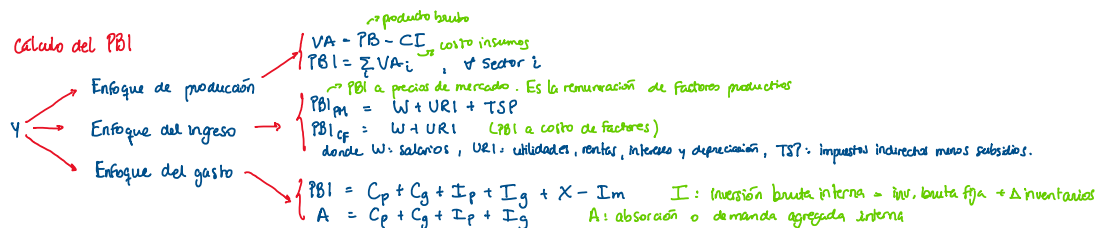 Cálculo del PBI
Y
Enfoque de producción
producto bruto
VA = PB - CI
costo insumos
PBI = Σ VAi , ∀ sector i
i
Enfoque del ingreso
PBI a precios de mercado. Es la remuneración de factores productivos
PBI PM = W + URI + TSP
PBI CF = W + URI (PBI a costo de factores)
donde W: salarios, URI: utilidades, rentas, intereses y depreciación, TSP: impuestos indirectos menos subsidios.
Enfoque del gasto
PBI = Cp + Cg + Ip + Ig + X - Im I: Inversión bruta interna = inv. bruta fija + Δ inventarios
A = Cp + Cg + Ip + Ig A: absorción o demanda agregada interna